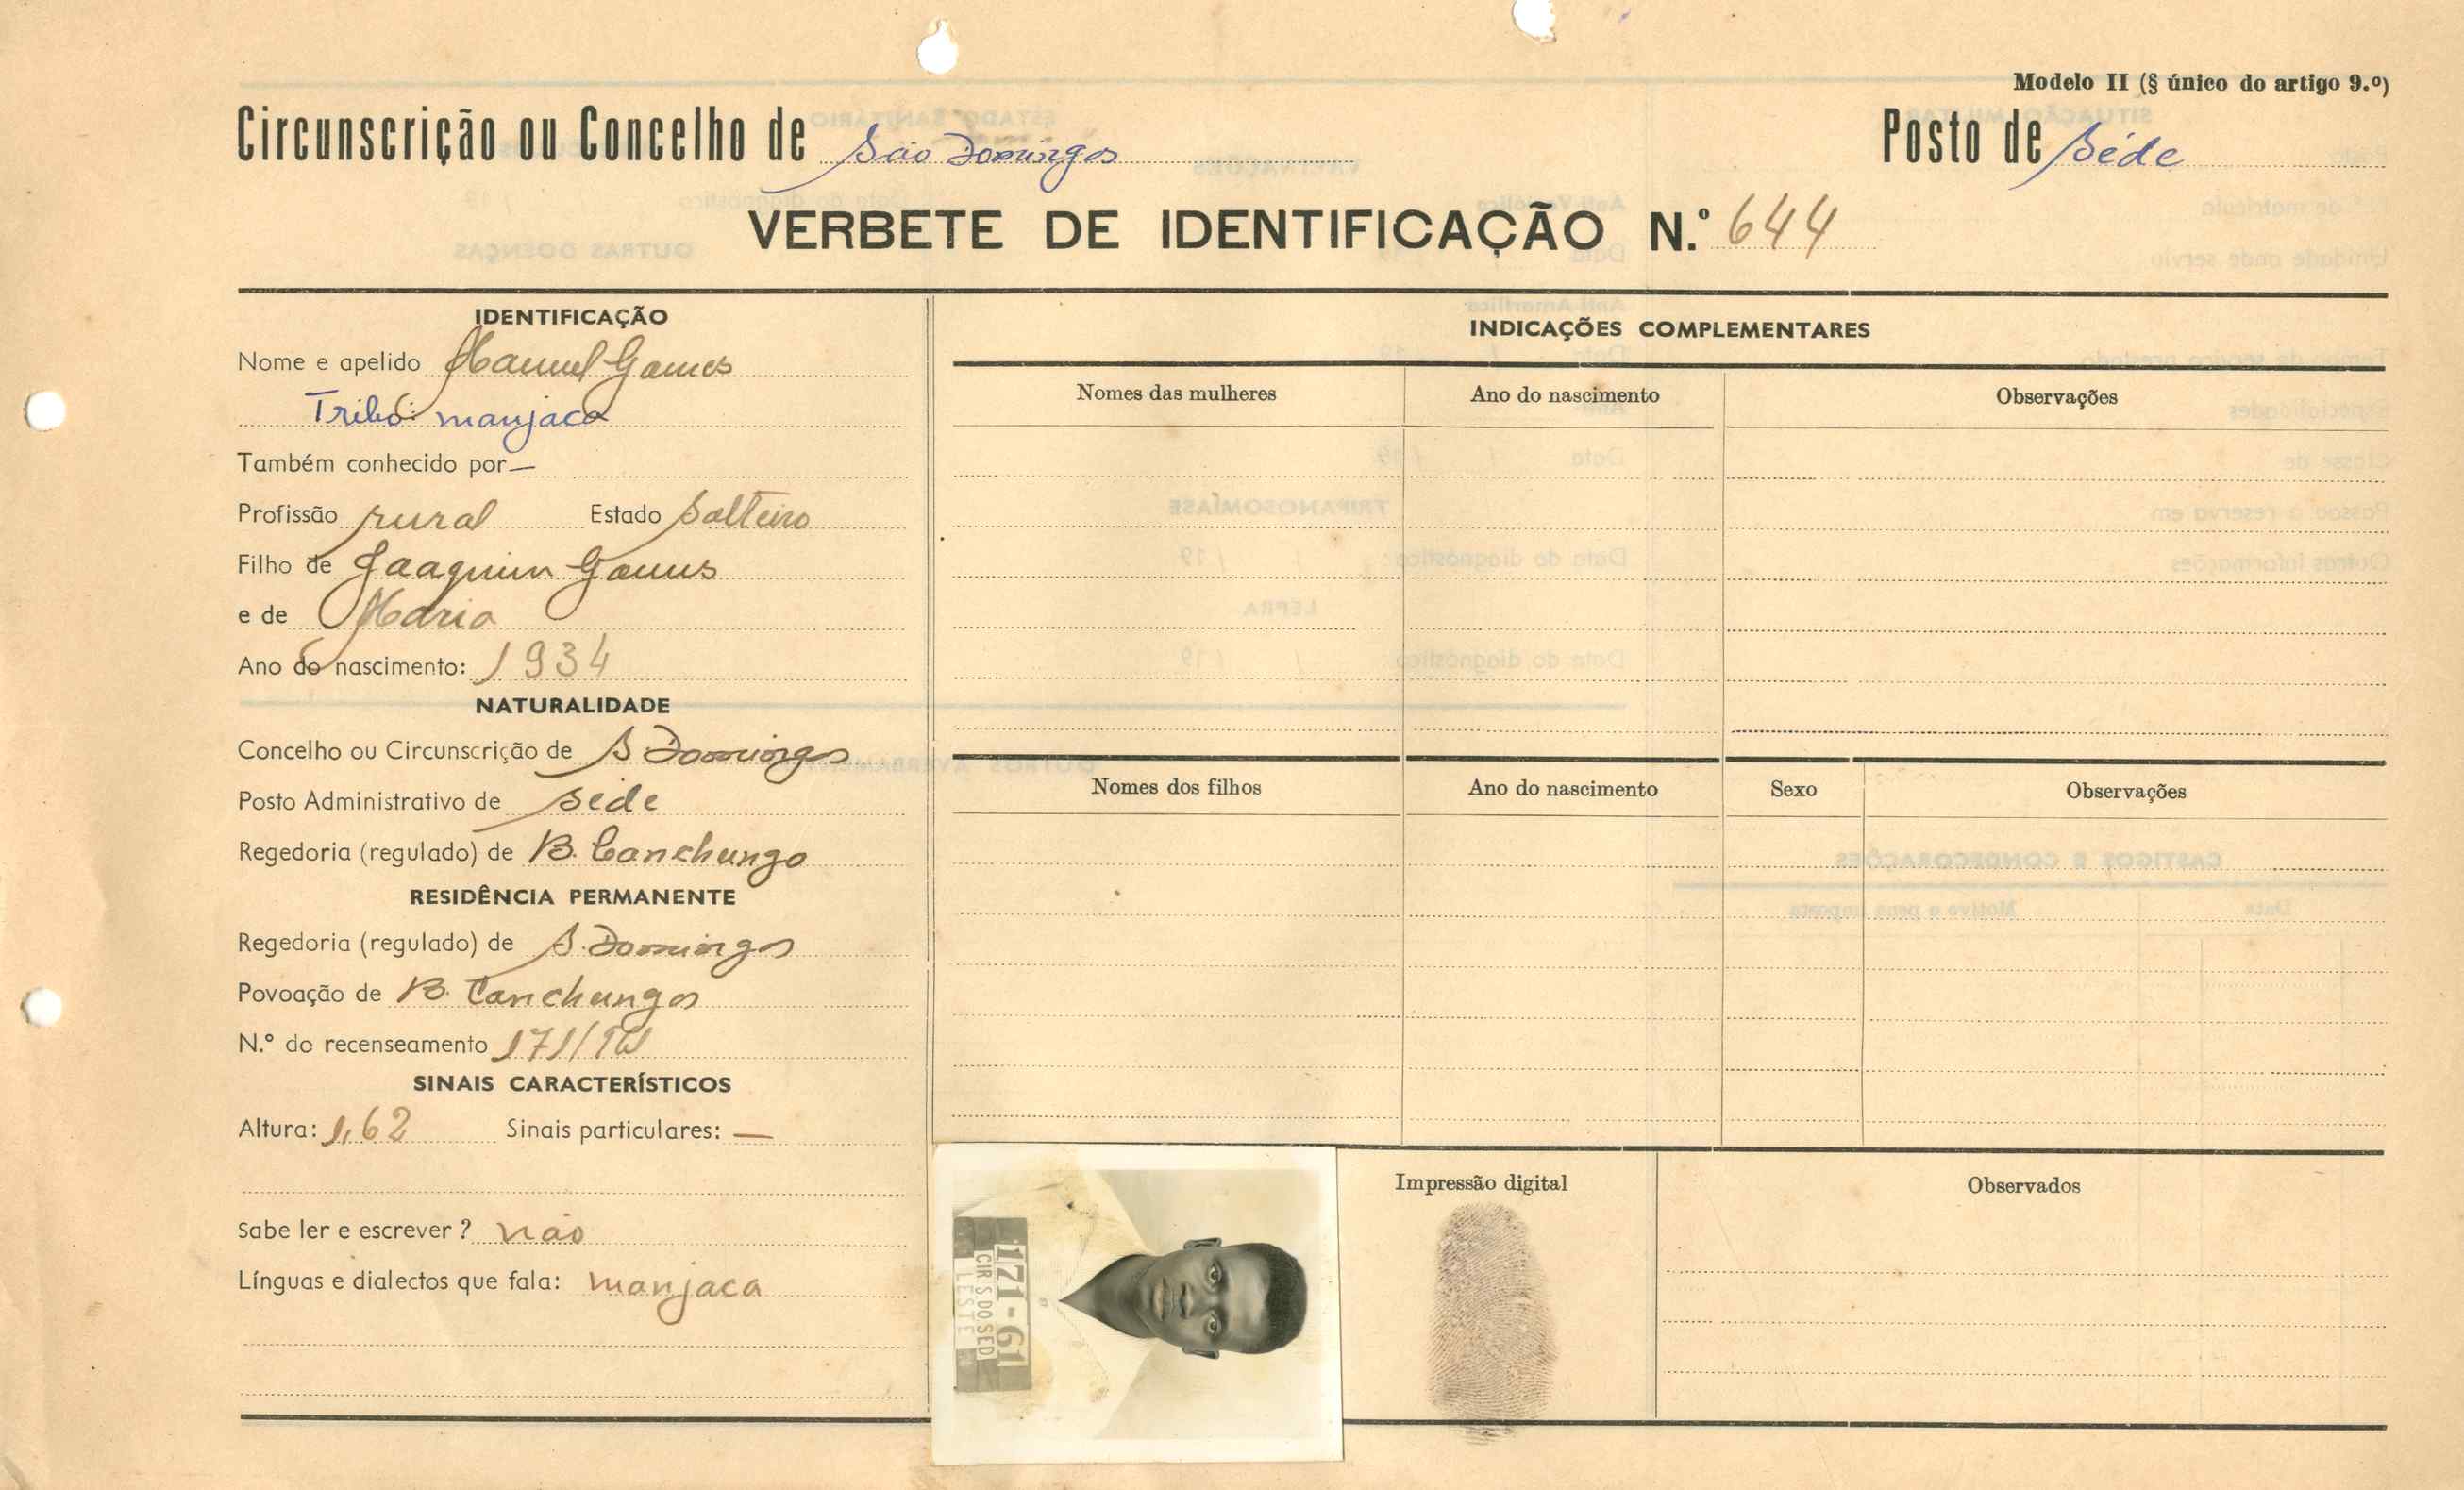 Modelo II (§ único do artigo 9.º)
Circunscrição ou Concelho de São Domingos Posto de Séde
VERBETE DE IDENTIFICAÇÃO N.º 644
IDENTIFICAÇÃO
Nome e apelido Manuel Gomes
Tribó: manjaca
Também conhecido por —
Profissão rural Estado Solteiro
Filho de Joaquim Gomes
e de Maria
Ano do nascimento: 1934
NATURALIDADE
Concelho ou Circunscrição de S Domingos
Posto Administrativo de séde
Regedoria (regulado) de B. Canchungo
RESIDÊNCIA PERMANENTE
Regedoria (regulado) de S. Domingos
Povoação de B. Canchungo
N.º do recenseamento 171/
SINAIS CARACTERÍSTICOS
Altura: 1,62 Sinais particulares: —
Sabe ler e escrever? não
Línguas e dialectos que fala: manjaca
INDICAÇÕES COMPLEMENTARES
Nomes das mulheres Ano do nascimento Observações
Nomes dos filhos Ano do nascimento Sexo Observações
171-61
CIR S DO SED
LESTE
Impressão digital
Observados